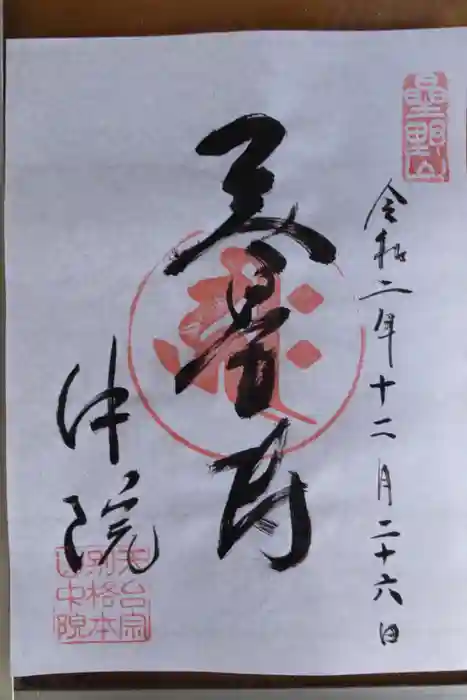 星野山
令和二年十二月二十六日
无量寿
中院
天台宗
別格本
山中院